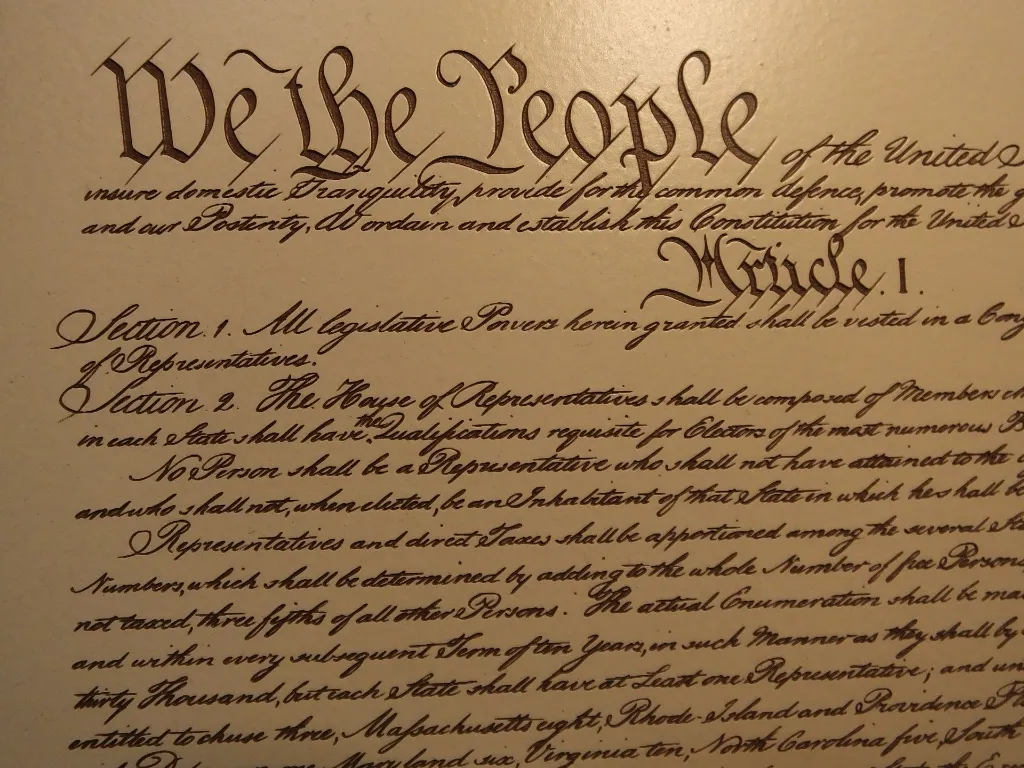 We the People of the United
insure domestic Tranquility, provide for the common defence, promote the
and our Posterity, do ordain and establish this Constitution for the United
Article. I.
Section. 1. All legislative Powers herein granted shall be vested in a
of Representatives.
Section. 2. The House of Representatives shall be composed of Members
in each State shall have the Qualifications requisite for Electors of the most numerous
No Person shall be a Representative who shall not have attained to the
and who shall not, when elected, be an Inhabitant of that State in which he shall
Representatives and direct Taxes shall be apportioned among the several
Numbers, which shall be determined by adding to the whole Number of free Persons
not taxed, three fifths of all other Persons. The actual Enumeration shall be
and within every subsequent Term of ten Years, in such Manner as they shall by
thirty Thousand, but each State shall have at Least one Representative; and
entitled to chuse three, Massachusetts eight, Rhode-Island and Providence
one, Maryland six, Virginia ten, North Carolina five, South